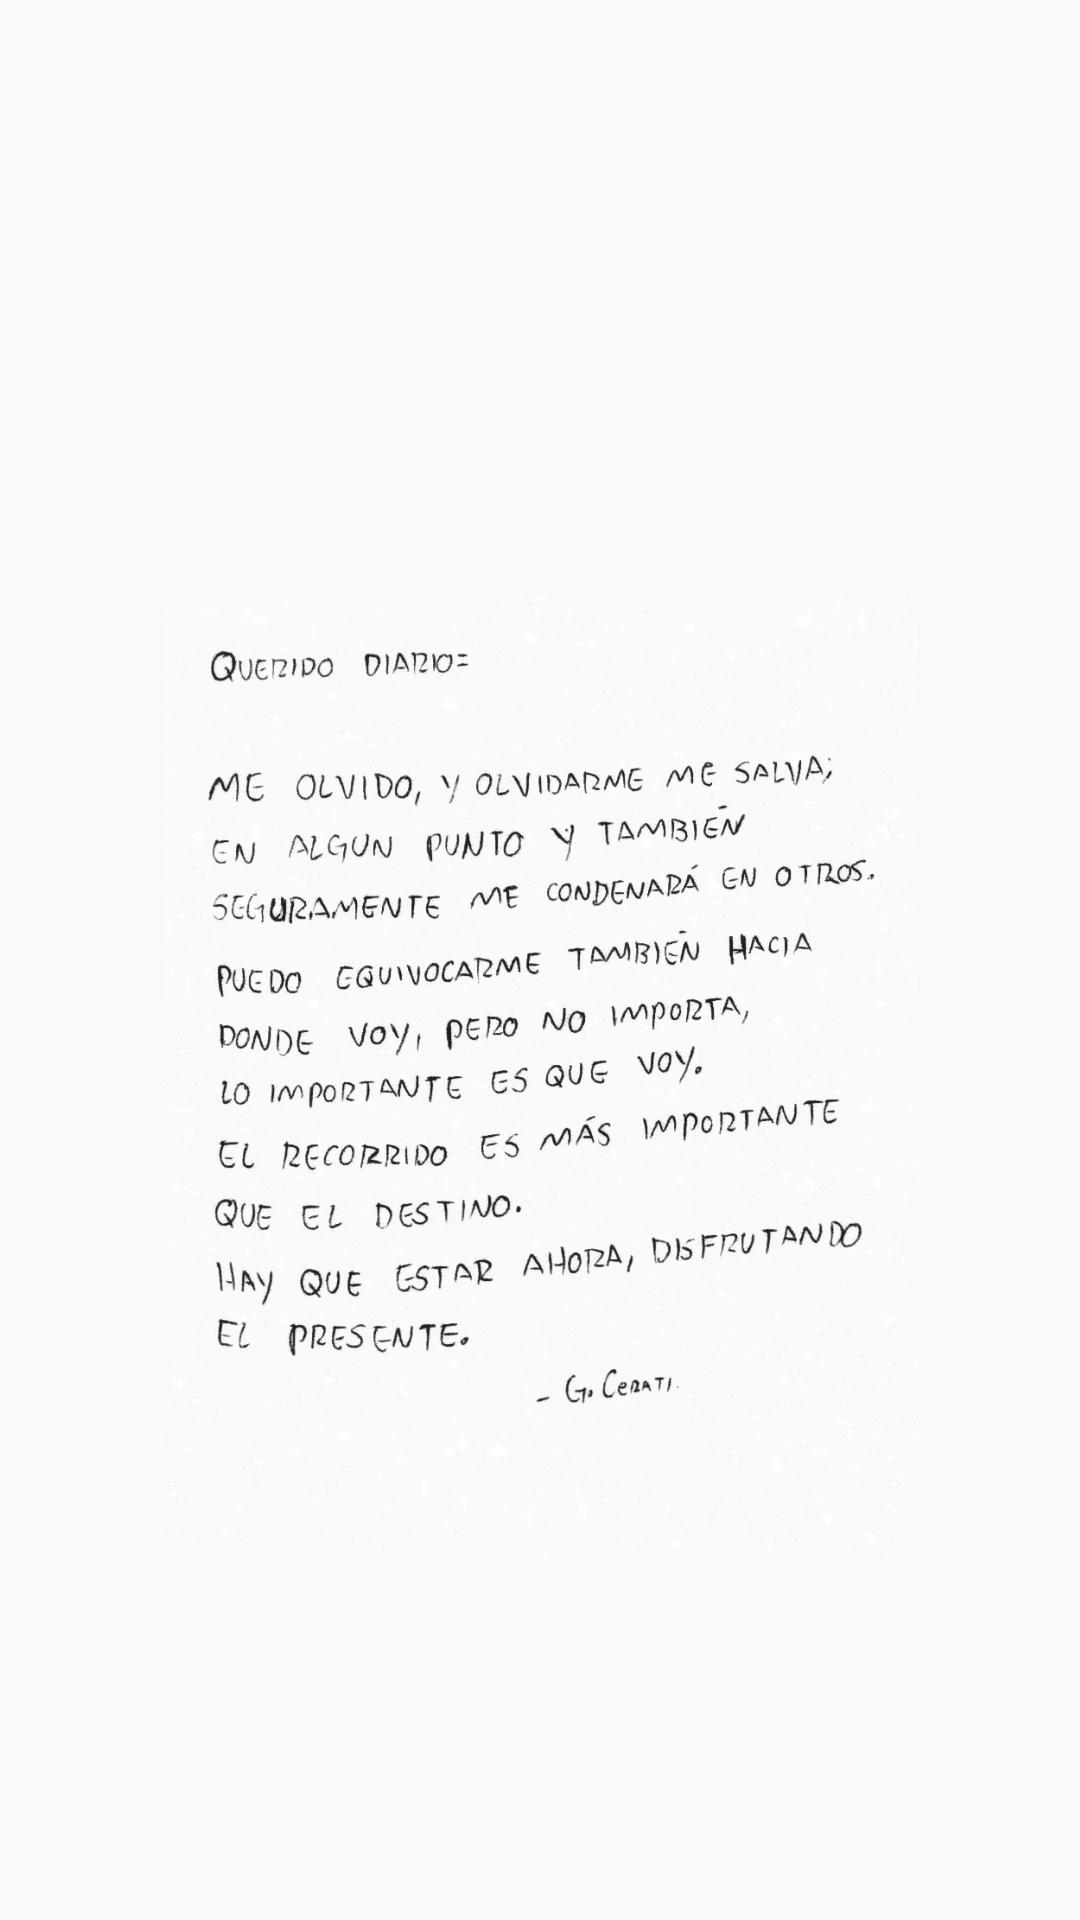 QUERIDO DIARIO=
ME OLVIDO, Y OLVIDARME ME SALVA;
EN ALGUN PUNTO Y TAMBIÉN
SEGURAMENTE ME CONDENARÁ EN OTROS.
PUEDO EQUIVOCARME TAMBIÉN HACIA
DONDE VOY, PERO NO IMPORTA,
LO IMPORTANTE ES QUE VOY.
EL RECORRIDO ES MÁS IMPORTANTE
QUE EL DESTINO.
HAY QUE ESTAR AHORA, DISFRUTANDO
EL PRESENTE.
- G. CERATI.